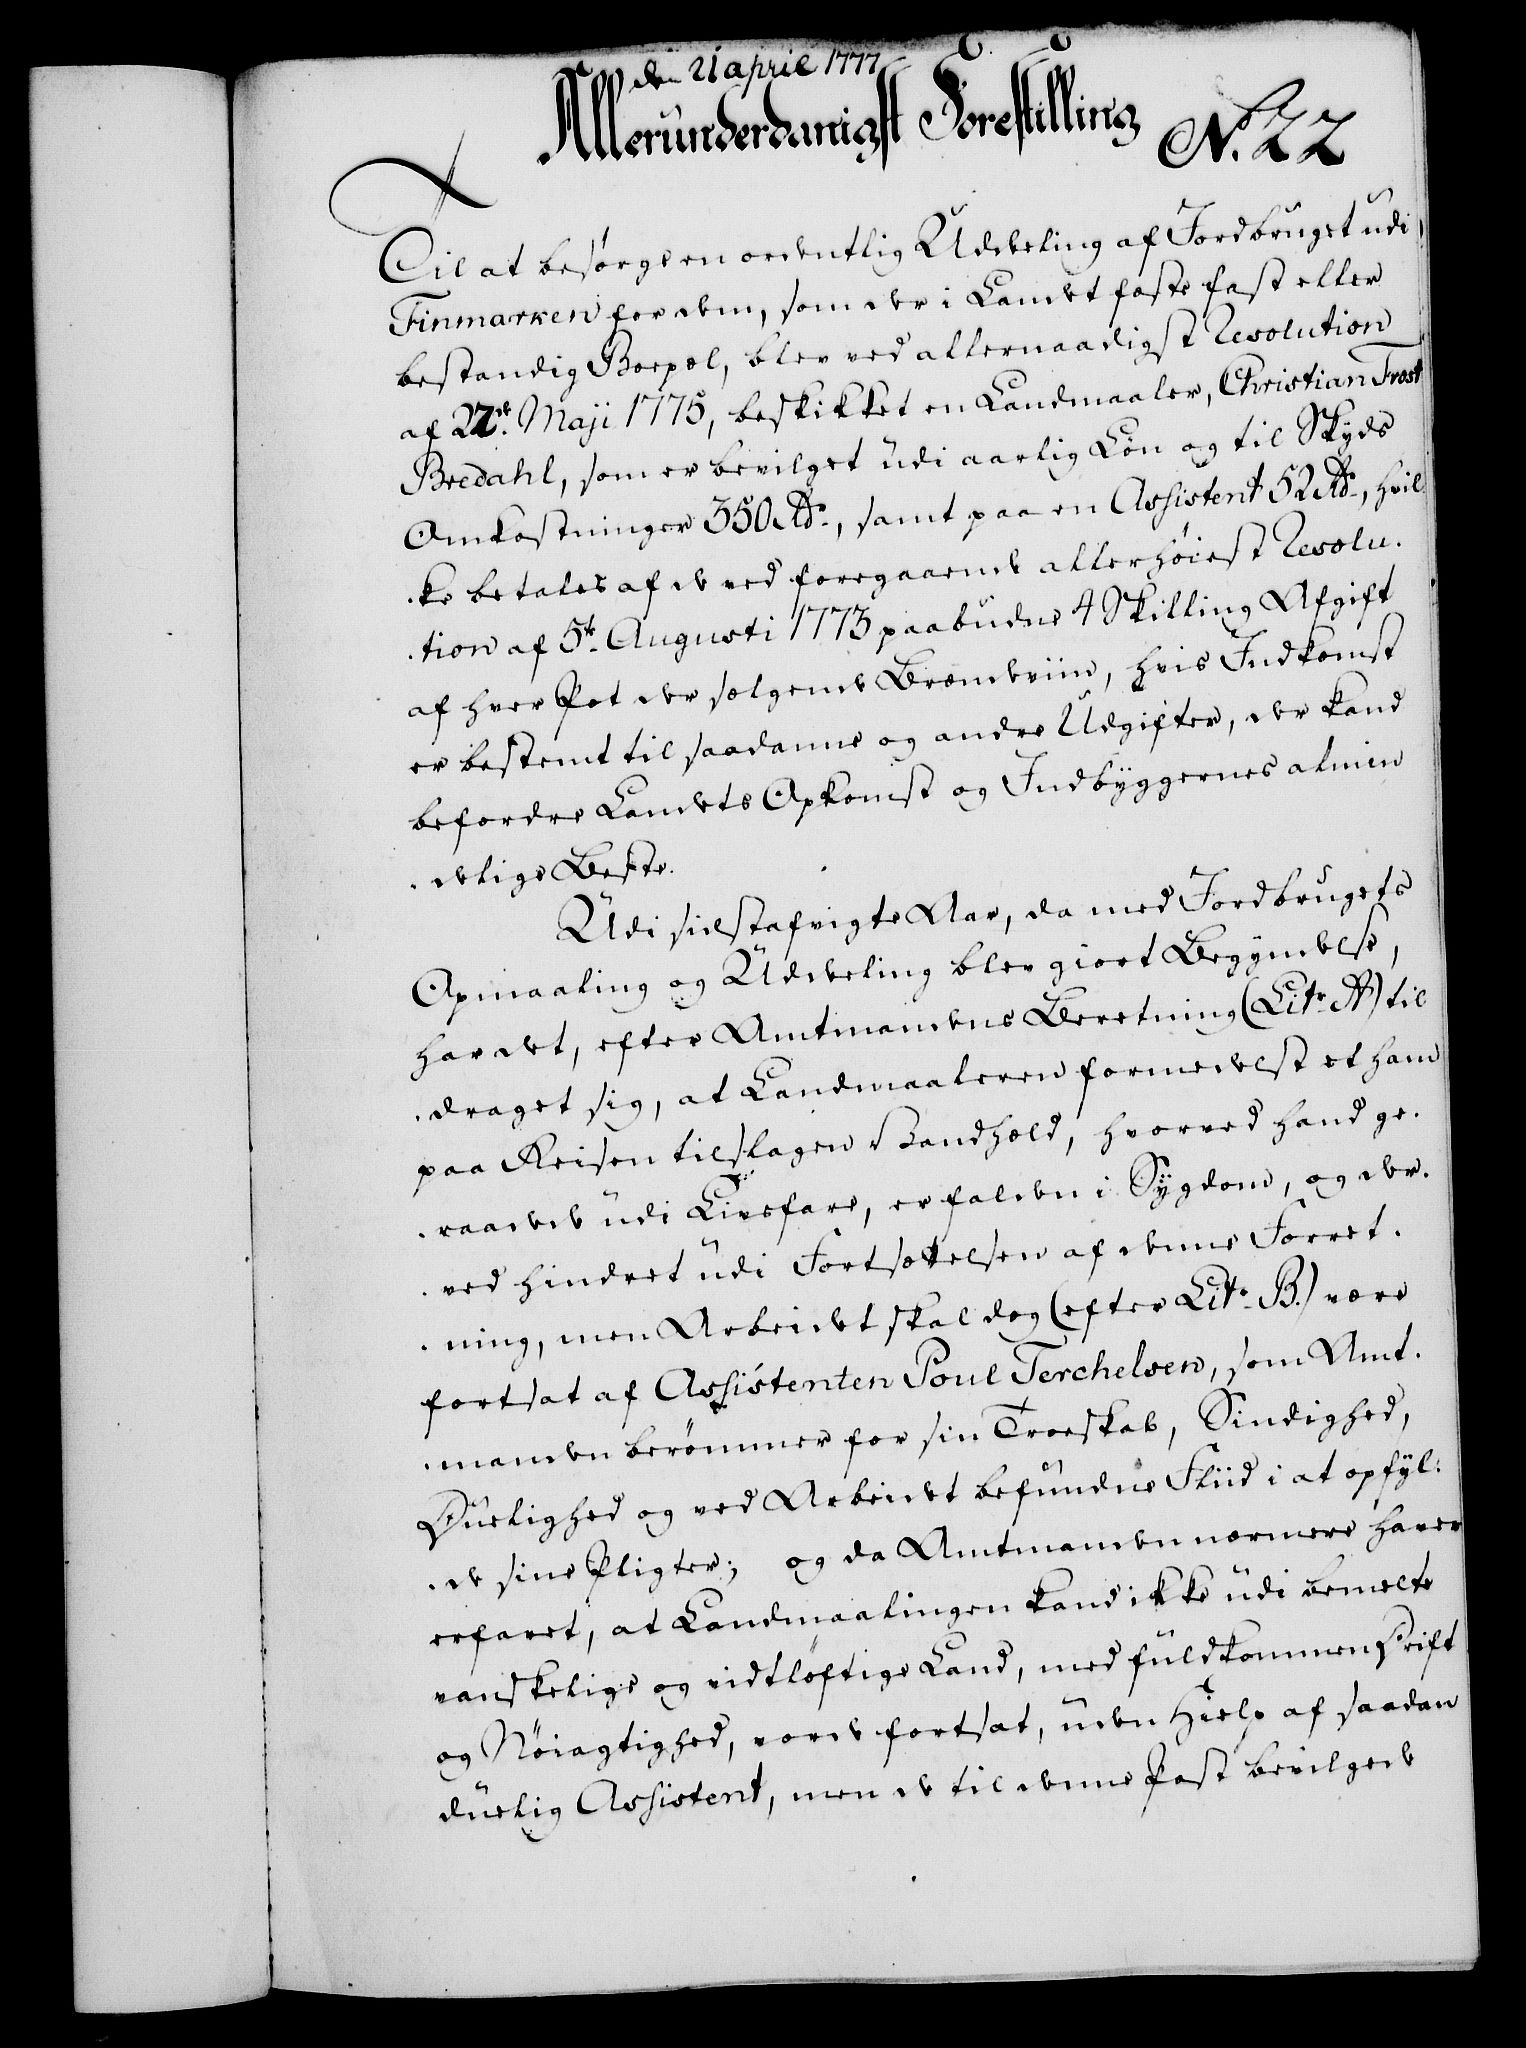 den 21 april 1777
Allerunderdanigst Forestilling N. 22
Til at besørge en ordentlig Uddeling af Jordbruget udi
Finmarken for dem, som der i Landet fæste fast eller
bestandig Boepæl, blev ved allernaadigst Resolution
af 22de Maji 1775, beskikket en Landmaaler, Christian Frost
Bredahl, som er bevilget udi aarlig Løn og til Skyds
Omkostninger 350 Rdr., samt paa en Assistent 52 Rdr., hvil
ke betales af de ved foregaaende allerhøiest Resolu-
tion af 5te Augusti 1773 paabudne 4 Skilling Afgift
af hver Pot der sælgende Brændeviin, hvis Indkomst
er bestemt til saadanne og andre Udgifter, der kand
befordre Landets Opkomst og Indbyggernes almin
delige Beste.
Udi sidstafvigte Aar, da med Jordbrugets
Opmaaling og Uddeling blev giort Begyndelse,
har det, efter Amtmandens Beretning (Litr. A) til
draget sig, at Landmaaleren formedelst et ham
paa Reisen tilslagen Vandhold, hvorved hand ge-
raadede udi Livsfare, er falden i Sygdom, og der-
ved hindret udi Fortsættelsen af denne Forret-
ning, men Arbeidet skal dog (efter Litr. B.) være
fortsat af Assistenten Poul Terchelsen, som Amt-
manden berømmer for sin Troeskab, Sindighed,
Duelighed og ved Arbeidet befundne Fliid i at opfyl-
de sine Pligter; og da Amtmanden nærmere haver
erfaret, at Landmaalingen kand ikke udi bemelte
vanskelige og vidtløftige Land, med fuldkommen Drift
og Nøiagtighed, vorde fortsat, uden Hielp af saadan
duelig Assistent, men de til denne Post bevilgede